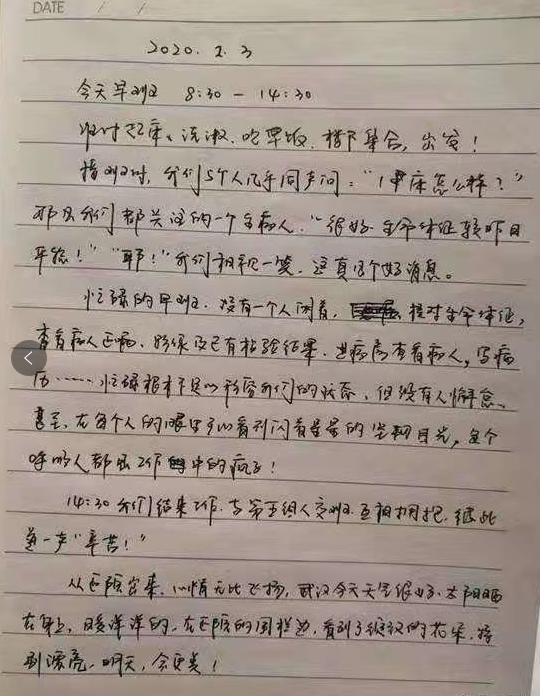 DATE / /
2020.2.3
今天早班 8:30 — 14:30
准时起床、洗漱、吃早饭、楼下集合,出发!
接班时,我们5个人几乎同声问:“1床怎么样?”
那是我们都关注的一个重病人。“很好,生命体征较昨日
平稳!”“耶!”我们相视一笑,这真是个好消息。
忙碌的早班,没有一个人闲着,核对生命体征,
查看病人医嘱,的结果,进病房查看病人,写病
历……忙碌根本不足以形容我们的状态,但没有人懈怠、
甚至,在每个人的眼里可以看到闪着星星的坚韧目光,各个
呼吸人都是工作中的疯子!
14:30 我们结束工作,与第五组人交班,互相拥抱,彼此
道一声“辛苦!”
从医院出来,心情无比飞扬,武汉今天天气很好,太阳晒
在身上,暖洋洋的,在医院的围栏边,看到了的花朵,特
别漂亮,明天,会更美!